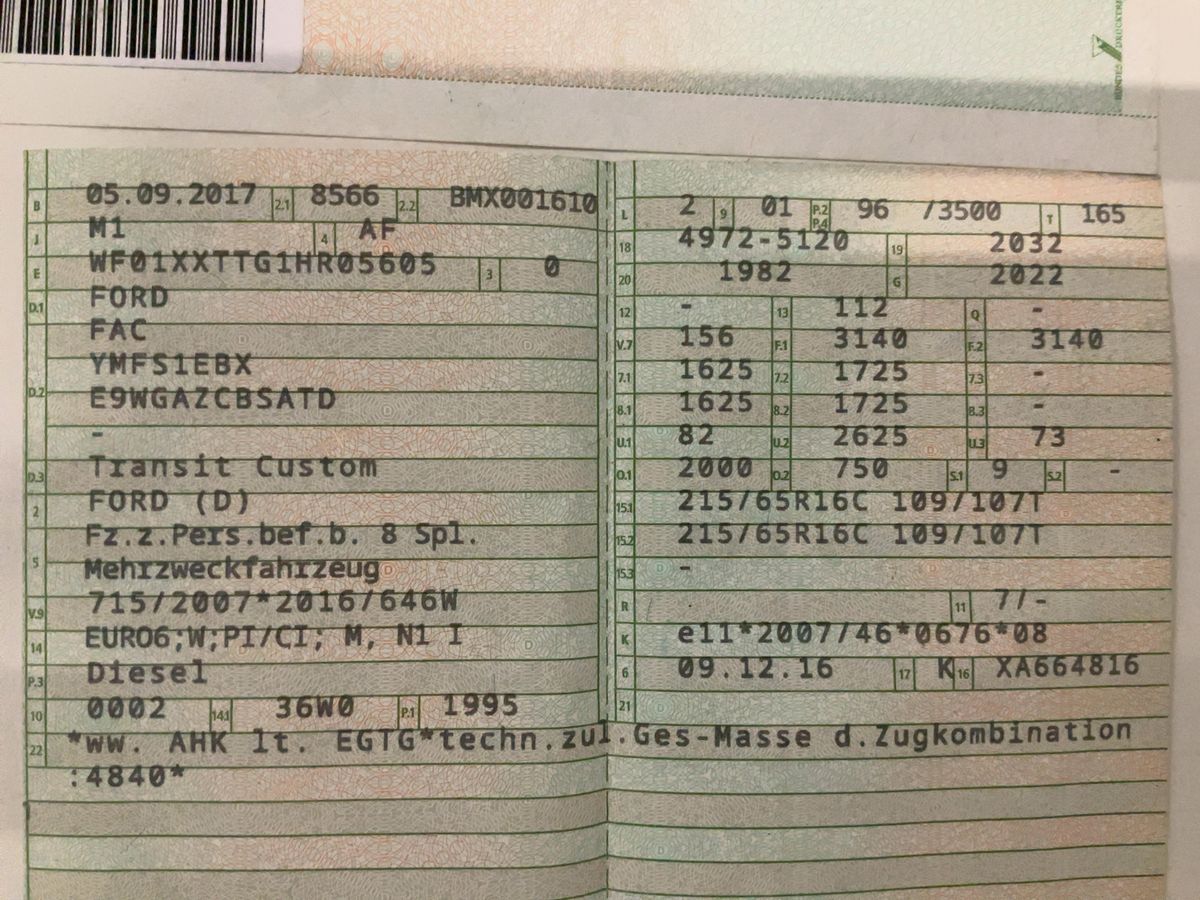 BUNDES DRUCKEREI
B 05.09.2017 2.1 8566 2.2 BMX001610
J M1 4 AF
E WF01XXTTG1HR05605 3 0
D.1 FORD
FAC
YMFS1EBX
D.2 E9WGAZCBSATD
-
D.3 Transit Custom
2 FORD (D)
Fz.z.Pers.bef.b. 8 Spl.
5 Mehrzweckfahrzeug
V.9 715/2007*2016/646W
14 EURO6;W;PI/CI; M, N1 I
P.3 Diesel
10 0002 14.1 36W0 P.1 1995
L 2 9 01 P.2 P.4 96 /3500 T 165
18 4972-5120 19 2032
20 1982 G 2022
12 - 13 112 Q -
V.7 156 F.1 3140 F.2 3140
7.1 1625 7.2 1725 7.3 -
8.1 1625 8.2 1725 8.3 -
U.1 82 U.2 2625 U.3 73
O.1 2000 O.2 750 S.1 9 S.2 -
15.1 215/65R16C 109/107T
15.2 215/65R16C 109/107T
15.3 -
R 11 7/-
K e11*2007/46*0676*08
6 09.12.16 17 K 16 XA664816
21
22 *ww. AHK lt. EGTG*techn.zul.Ges-Masse d.Zugkombination
:4840*